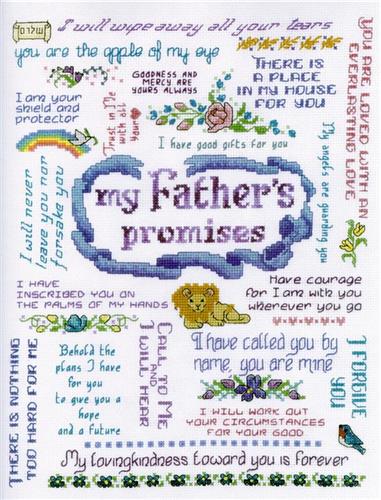 I will wipe away all your tears
you are the apple of my eye
GOODNESS AND
MERCY ARE
YOURS ALWAYS
THERE IS
A PLACE
IN MY HOUSE
FOR YOU
YOU ARE LOVED WITH AN
EVERLASTING LOVE
I am your
shield and
protector
Trust in Me
with all
your
I have good gifts for you
My angels are guarding you
I will never
leave you nor
forsake you
my Father's
promises
I HAVE
INSCRIBED YOU ON
THE PALMS OF MY HANDS
Have courage
for I am with you
wherever you go
THERE IS NOTHING
TOO HARD FOR ME
Behold the
plans I have
for you
to give you a
hope
and a future
CALL TO ME
AND
I WILL HEAR
I have called you by
name, you are mine
I FORGIVE
YOU
I WILL WORK OUT
YOUR CIRCUMSTANCES
FOR YOUR GOOD
My lovingkindness toward you is forever